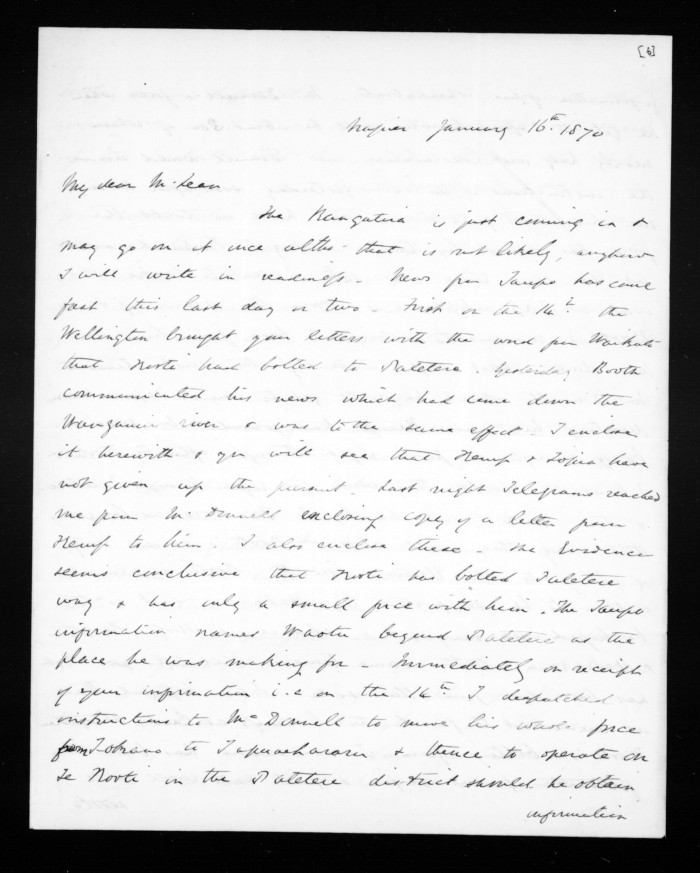 [6]
Napier January 16th. 1870
My dear McLean
The Rangatira is just coming in &
may go on at once altho' that is not likely, anyhow
I will write in readiness - News from Taupo has come
fast this last day or two - First on the 14th. the
Wellington brought your letters with the word from Waikato
that Kooti had bolted to Patetere. Yesterday Booth
communicated his news which had come down the
Wanganui river & was to the same effect - I enclose
it herewith & you will see that Kemp & Topia have
not given up the pursuit. Last night Telegrams reached
me from McDonnell enclosing copy of a letter from
Kemp to him. I also enclose these - The Evidence
seems conclusive that Kooti has bolted Patetere
way & has only a small force with him. The Taupo
information names Waotu beyond Patetere as the
place he was making for - Immediately on receipt
of your information i.e on the 14th I despatched
instructions to McDonnell to move his whole force
from Tokano to Tapuaeharuru & thence to operate on
Te Kooti in the Patetere district should he obtain
information